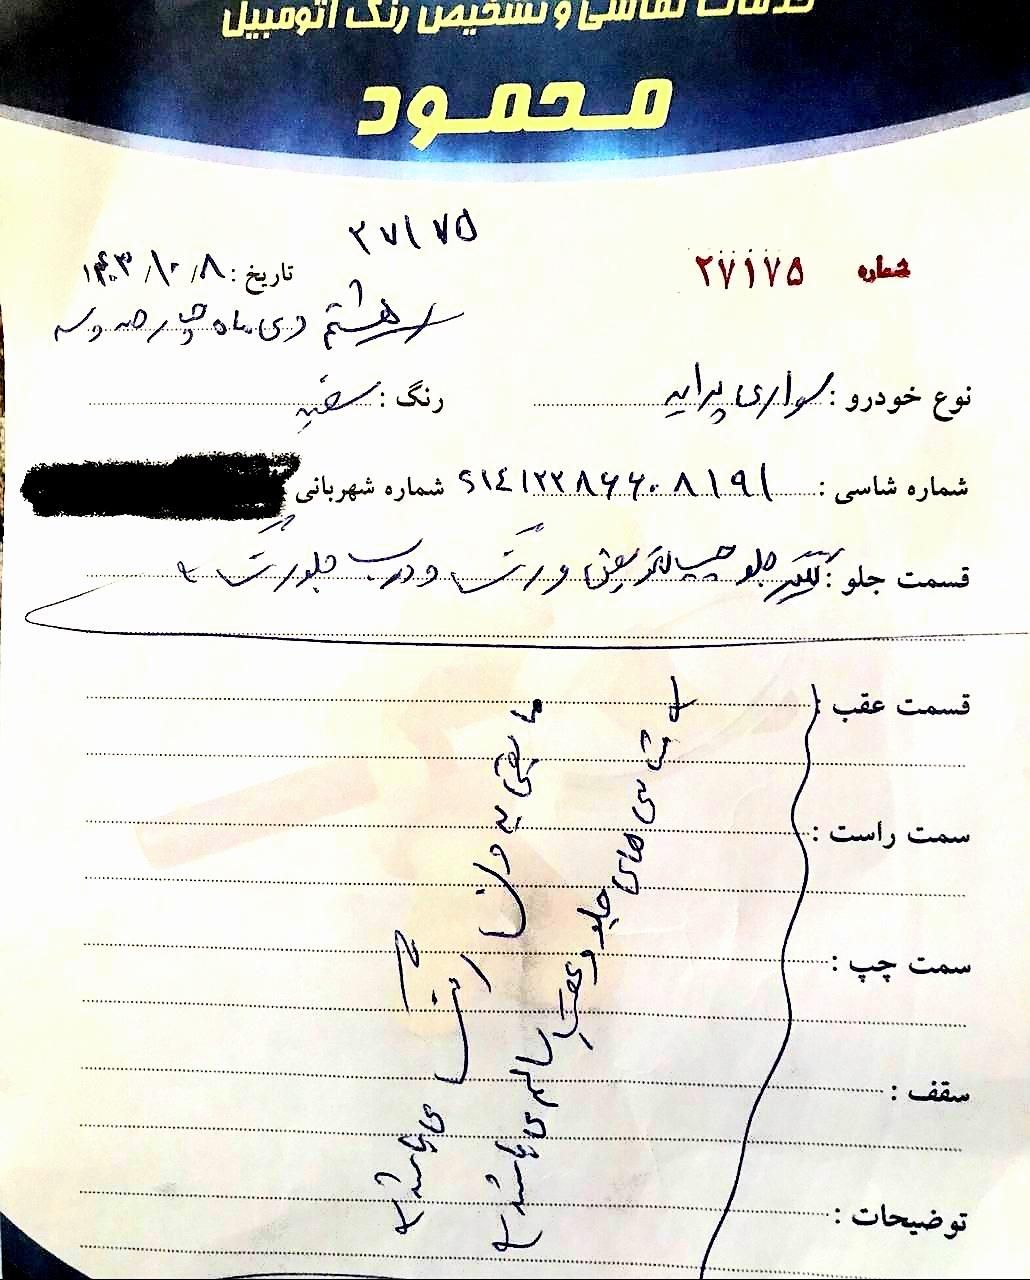 خدمات نقاشی و تشخیص رنگ اتومبیل
محمود
۲۷۱۷۵
شماره ۲۷۱۷۵
تاریخ : ۱۴۰۳/۱۰/۸
هشتم دی ماه چهارصد و سه
نوع خودرو : سواری پراید
رنگ : سفید
شماره شاسی : S۱۴۱۲۲۸۶۶۰۸۱۹۱
شماره شهربانی
قسمت جلو : گلگیر جلو چپ و رنگ و درب جلو رنگ
قسمت عقب :
سمت راست :
سمت چپ :
سقف :
توضیحات :
شاسی های جلو و عقب سالم می باشد
مابقی بدون رنگ می باشد